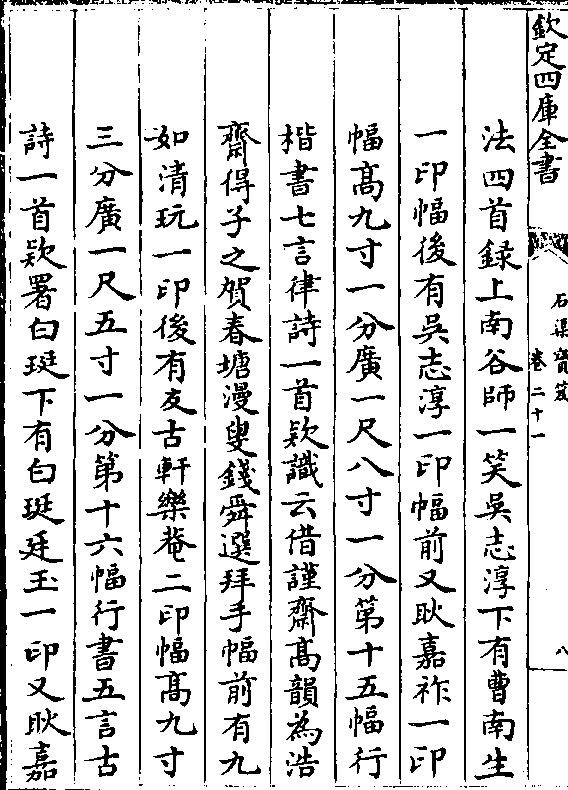 欽定四庫全書
石渠寳笈
卷二十一
八
法四首録上南谷師一笑吳志淳下有曹南生
一印幅後有吳志淳一印幅前又耿嘉祚一印
幅髙九寸一分廣一尺八寸一分第十五幅行
楷書七言律詩一首欵識云借謹齋髙韻為浩
齋得子之賀春塘漫叟錢舜選拜手幅前有九
如清玩一印後有友古軒樂菴二印幅髙九寸
三分廣一尺五寸一分第十六幅行書五言古
詩一首欵署白珽下有白珽廷玉一印又耿嘉